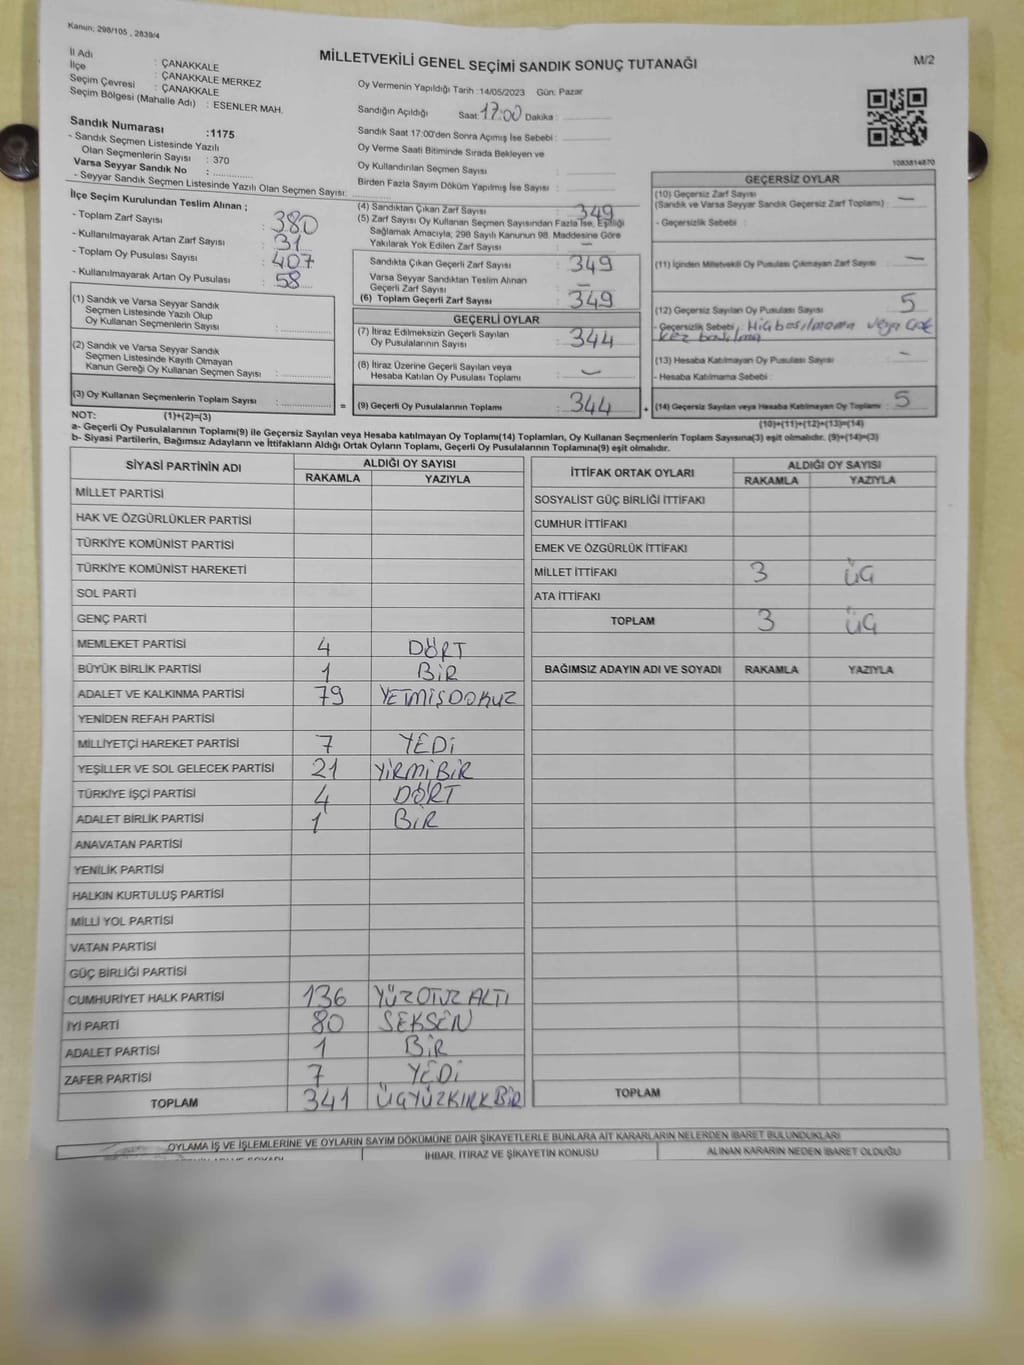 Kanun: 298/105 , 2839/4
MİLLETVEKİLİ GENEL SEÇİMİ SANDIK SONUÇ TUTANAĞI
M/2
İl Adı : ÇANAKKALE
İlçe : ÇANAKKALE MERKEZ
Seçim Çevresi : ÇANAKKALE
Seçim Bölgesi (Mahalle Adı) : ESENLER MAH.
Sandık Numarası :1175
- Sandık Seçmen Listesinde Yazılı
Olan Seçmenlerin Sayısı : 370
Varsa Seyyar Sandık No :
- Seyyar Sandık Seçmen Listesinde Yazılı Olan Seçmen Sayısı:
Oy Vermenin Yapıldığı Tarih :14/05/2023 Gün: Pazar
Sandığın Açıldığı Saat: 17:00 Dakika :
Sandık Saat 17:00'den Sonra Açımış İse Sebebi :
Oy Verme Saati Bitiminde Sırada Bekleyen ve
Oy Kullandırılan Seçmen Sayısı :
Birden Fazla Sayım Döküm Yapılmış İse Sayısı :
1083814870
İlçe Seçim Kurulundan Teslim Alınan ;
- Toplam Zarf Sayısı : 380
- Kullanılmayarak Artan Zarf Sayısı : 31
- Toplam Oy Pusulası Sayısı : 407
- Kullanılmayarak Artan Oy Pusulası : 58
(1) Sandık ve Varsa Seyyar Sandık
Seçmen Listesinde Yazılı Olup
Oy Kullanan Seçmenlerin Sayısı :
(2) Sandık ve Varsa Seyyar Sandık
Seçmen Listesinde Kayıtlı Olmayan
Kanun Gereği Oy Kullanan Seçmen Sayısı :
(3) Oy Kullanan Seçmenlerin Toplam Sayısı :
(4) Sandıktan Çıkan Zarf Sayısı : 349
(5) Zarf Sayısı Oy Kullanan Seçmen Sayısından Fazla İse, Eşitliği
Sağlamak Amacıyla, 298 Sayılı Kanunun 98. Maddesine Göre
Yakılarak Yok Edilen Zarf Sayısı : —
Sandıkta Çıkan Geçerli Zarf Sayısı : 349
Varsa Seyyar Sandıktan Teslim Alınan
Geçerli Zarf Sayısı : —
(6) Toplam Geçerli Zarf Sayısı : 349
GEÇERLİ OYLAR
(7) İtiraz Edilmeksizin Geçerli Sayılan
Oy Pusulalarının Sayısı : 344
(8) İtiraz Üzerine Geçerli Sayılan veya
Hesaba Katılan Oy Pusulası Toplamı : —
= (9) Geçerli Oy Pusulalarının Toplamı : 344
GEÇERSİZ OYLAR
(10) Geçersiz Zarf Sayısı
(Sandık ve Varsa Seyyar Sandık Geçersiz Zarf Toplamı) : —
- Geçersizlik Sebebi :
(11) İçinden Milletvekili Oy Pusulası Çıkmayan Zarf Sayısı : —
(12) Geçersiz Sayılan Oy Pusulası Sayısı : 5
- Geçersizlik Sebebi : Hiç basılmama veya çok
kez basılma
(13) Hesaba Katılmayan Oy Pusulası Sayısı : —
- Hesaba Katılmama Sebebi :
+ (14) Geçersiz Sayılan veya Hesaba Katılmayan Oy Toplamı : 5
NOT: (1)+(2)=(3)
(10)+(11)+(12)+(13)=(14)
a- Geçerli Oy Pusulalarının Toplamı(9) ile Geçersiz Sayılan veya Hesaba katılmayan Oy Toplamı(14) Toplamları, Oy Kullanan Seçmenlerin Toplam Sayısına(3) eşit olmalıdır. (9)+(14)=(3)
b- Siyasi Partilerin, Bağımsız Adayların ve İttifakların Aldığı Ortak Oyların Toplamı, Geçerli Oy Pusulalarının Toplamına(9) eşit olmalıdır.
SİYASİ PARTİNİN ADI ALDIĞI OY SAYISI
RAKAMLA YAZIYLA
MİLLET PARTİSİ
HAK VE ÖZGÜRLÜKLER PARTİSİ
TÜRKİYE KOMÜNİST PARTİSİ
TÜRKİYE KOMÜNİST HAREKETİ
SOL PARTİ
GENÇ PARTİ
MEMLEKET PARTİSİ 4 DÖRT
BÜYÜK BİRLİK PARTİSİ 1 BİR
ADALET VE KALKINMA PARTİSİ 79 YETMİŞDOKUZ
YENİDEN REFAH PARTİSİ
MİLLİYETÇİ HAREKET PARTİSİ 7 YEDİ
YEŞİLLER VE SOL GELECEK PARTİSİ 21 YİRMİBİR
TÜRKİYE İŞÇİ PARTİSİ 4 DÖRT
ADALET BİRLİK PARTİSİ 1 BİR
ANAVATAN PARTİSİ
YENİLİK PARTİSİ
HALKIN KURTULUŞ PARTİSİ
MİLLİ YOL PARTİSİ
VATAN PARTİSİ
GÜÇ BİRLİĞİ PARTİSİ
CUMHURİYET HALK PARTİSİ 136 YÜZOTUZ ALTI
İYİ PARTİ 80 SEKSEN
ADALET PARTİSİ 1 BİR
ZAFER PARTİSİ 7 YEDİ
TOPLAM 341 ÜÇYÜZKIRKBİR
İTTİFAK ORTAK OYLARI ALDIĞI OY SAYISI
RAKAMLA YAZIYLA
SOSYALİST GÜÇ BİRLİĞİ İTTİFAKI
CUMHUR İTTİFAKI
EMEK VE ÖZGÜRLÜK İTTİFAKI
MİLLET İTTİFAKI 3 ÜÇ
ATA İTTİFAKI
TOPLAM 3 ÜÇ
BAĞIMSIZ ADAYIN ADI VE SOYADI RAKAMLA YAZIYLA
TOPLAM
OYLAMA İŞ VE İŞLEMLERİNE VE OYLARIN SAYIM DÖKÜMÜNE DAİR ŞİKAYETLERLE BUNLARA AİT KARARLARIN NELERDEN İBARET BULUNDUKLARI
İHBAR, İTİRAZ VE ŞİKAYETİN KONUSU ALINAN KARARIN NEDEN İBARET OLDUĞU